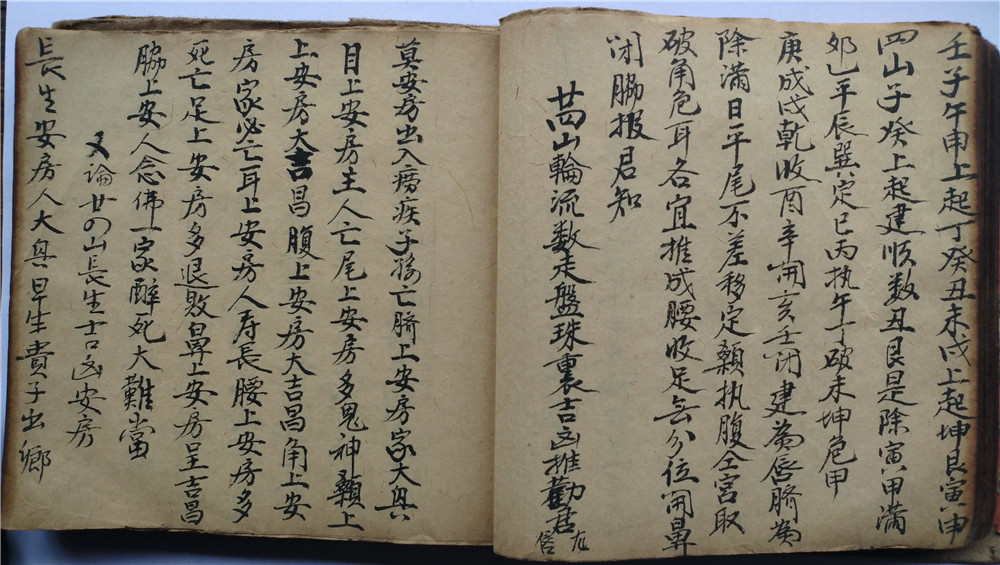 壬子午申上起丁癸丑未戌上起坤艮寅申
四山子癸上起建順数丑艮是除寅甲满
夘乙平辰巽定巳丙执午丁破未坤危甲
庚成戌乾收酉辛開亥壬闭建為唇臍為
除满日平尾不差移定顙执腹全宫取
破角危耳各宜推成腰收足無分位開鼻
闭脇报君知
廿四山輪流数走盤珠裏吉凶推勸君
莫安房出入痨疾子孫亡臍上安房家大興
目上安房主人亡尾上安房多鬼神顙上
上安房大吉昌腹上安房大吉昌角上安
房家必亡耳上安房人寿長腰上安房多
死亡足上安房多退敗鼻上安房呈吉昌
脇上安人念佛一家醉死大難當
又論廿四山長生吉凶安房
長生安房人大興早生貴子出鄉